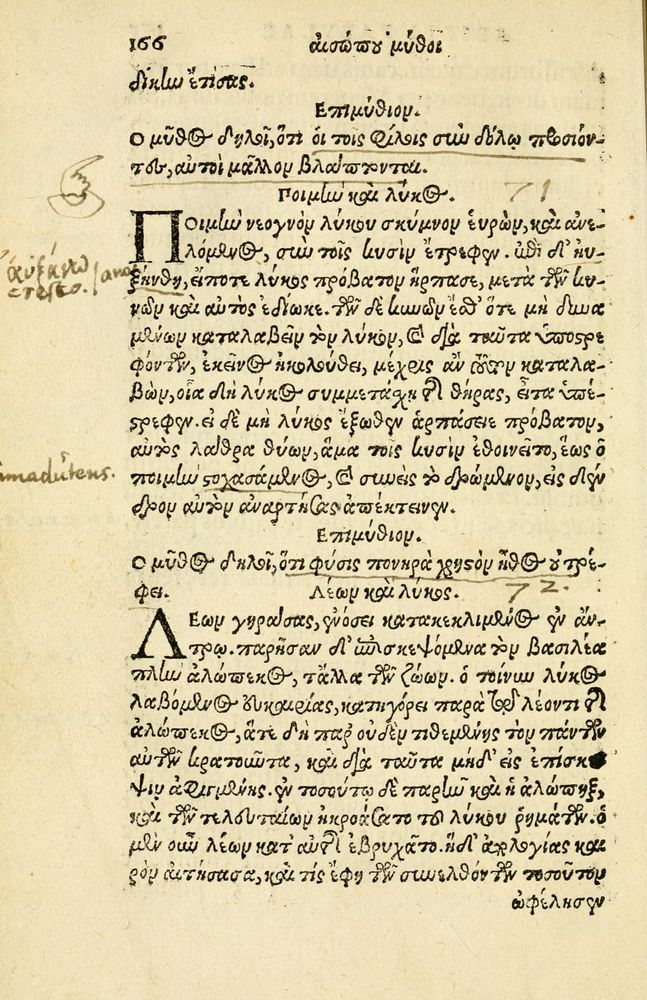 166 αἰσώπου μῦθοι
δίκην ἔτισας.
Επιμύθιον.
Ο μῦθος δηλοῖ, ὅτι οἱ τοῖς φίλοις σὺν δόλῳ προσιόν-
τες, αὐτοὶ μᾶλλον βλάπτονται.
Ποιμὴν καὶ λύκος. 71
ΠΟιμὴν νεογνὸν λύκου σκύμνον εὑρὼν, καὶ ἀνε-
λόμενος, σὺν τοῖς κυσὶν ἔτρεφεν. ἐπεὶ δ' ηὐ-
αὐξάνω
cresco.
ξήνθη, εἴποτε λύκος πρόβατον ἥρπασε, μετὰ τῶν κυ-
νῶν καὶ αὐτὸς ἐδίωκε. τῶν δὲ κυνῶν ἔσθ' ὅτε μὴ δυνα
μένων καταλαβεῖν τὸν λύκον, καὶ διὰ ταῦτα ὑποστρε
φόντων, ἐκεῖνος ἠκολούθει, μέχρις ἂν τοῦτον καταλα-
βὼν, οἷα δὴ λύκος συμμετάσχῃ τῆς θήρας, εἶτα ὑπέ-
στρεφεν. εἰ δὲ μὴ λύκος ἔξωθεν ἁρπάσειε πρόβατον,
αὐτὸς λάθρα θύων, ἅμα τοῖς κυσὶν ἐθοινεῖτο, ἕως ὁ
ποιμὴν στοχασάμενος, καὶ συνεὶς τὸ δρώμενον, εἰς δέν
δρον αὐτὸν ἀναρτήσας ἀπέκτεινεν.
Επιμύθιον.
Ο μῦθος δηλοῖ, ὅτι φύσις πονηρὰ χρηστὸν ἦθος οὐ τρέ-
φει.
Λέων καὶ λύκος. 72.
ΛΕων γηράσας, ἐνόσει κατακεκλιμένος ἐν ἄν-
τρῳ. παρῆσαν δ' ἐπισκεψόμενα τὸν βασιλέα
πλὴν ἀλώπεκος, τἄλλα τῶν ζώων. ὁ τοίνυν λύκος
λαβόμενος εὐκαιρίας, κατηγόρει παρὰ τῷ λέοντι τῆς
ἀλώπεκος, ἅτε δὴ παρ' οὐδὲν τιθεμένης τὸν πάντων
αὐτῶν κρατοῦντα, καὶ διὰ ταῦτα μηδ' εἰς ἐπίσκε
ψιν ἀφιγμένης. ἐν τοσούτῳ δὲ παρῆν καὶ ἡ ἀλώπηξ,
καὶ τῶν τελευταίων ἠκροάσατο τοῦ λύκου ῥημάτων. ὁ
μὲν οὖν λέων κατ' αὐτῆς ἐβρυχᾶτο. ἡ δ' ἀπολογίας και
ρὸν αἰτήσασα, καὶ τίς ἔφη τῶν συνελθόντων τοσοῦτον
ὠφέλησεν